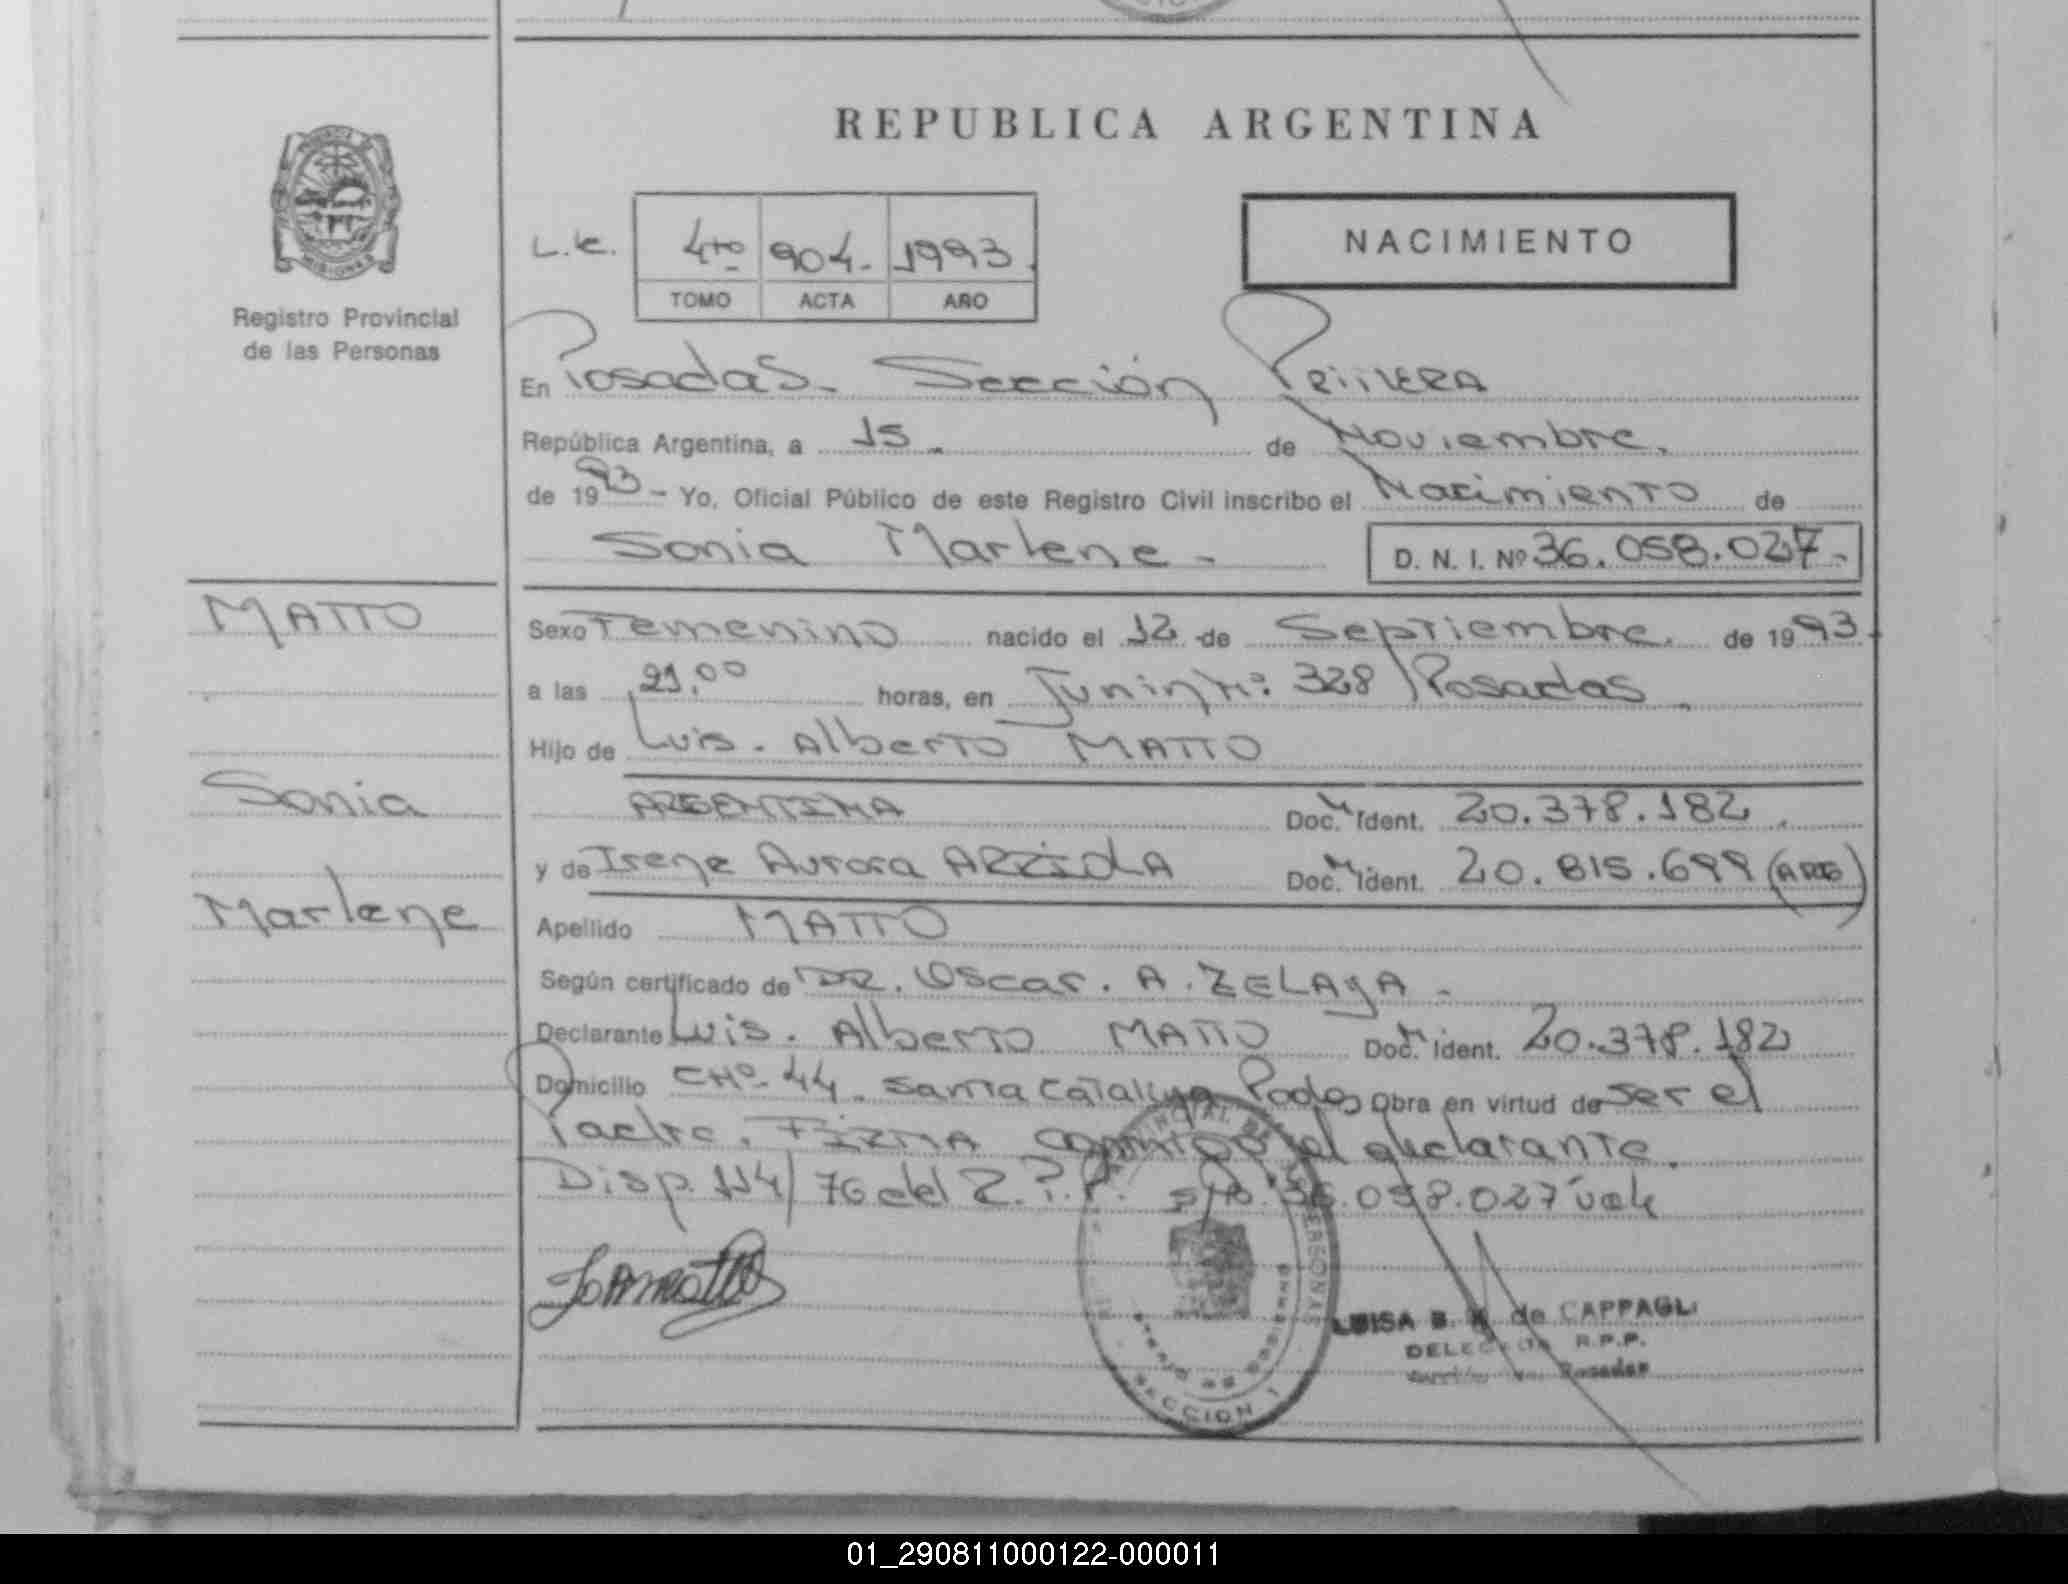 REPUBLICA ARGENTINA
MISIONES
Registro Provincial
de las Personas
L.E.
4to 904. 1993.
TOMO ACTA AÑO
NACIMIENTO
En Posadas. Sección Primera
República Argentina, a 15. de Noviembre.
de 1993 - Yo, Oficial Público de este Registro Civil inscribo el Nacimiento de
Sonia Marlene - D. N. I. Nº 36.058.027.-
MATTO
Sonia
Marlene
Sexo Femenino nacido el 12 de Septiembre. de 1993.
a las 21,00 horas, en Junin Nº: 328 / Posadas.
Hijo de Luis. Alberto MATTO
ARGENTINA Doc. Ident. 20.378.182.
y de Irene Aurora ARRIOLA Doc. Ident. 20.815.699 (ARG)
Apellido MATTO
Según certificado de DR. Oscar. A. ZELAYA -
Declarante Luis. Alberto MATTO Doc. Ident. 20.378.182
Domicilio CHº 44. Santa Catalina Pdas Obra en virtud de ser el
Padre. FIRMA conmigo el declarante.
Disp. 114/76 del R.P.P. 36.058.027 vale
PROVINCIAL DE PERSONAS
SECCION 1
LUISA B. de CAPPAGLI
DELEGADA R.P.P.
Posadas
01_290811000122-000011